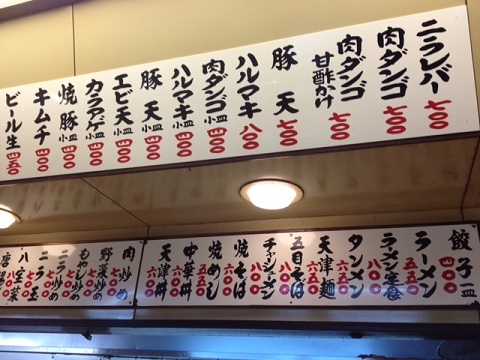 ニラレバー 七〇〇
肉ダンゴ 七〇〇
肉ダンゴ 甘酢かけ 七〇〇
豚天 七〇〇
ハルマキ 八〇
肉ダンゴ 小皿 四〇〇
ハルマキ 小皿 四〇〇
豚天 小皿 四〇〇
エビ天 小皿 四〇〇
カラアゲ 小皿 四〇〇
焼豚 小皿 四〇〇
キムチ 四〇〇
ビール生 四五〇
餃子 一皿 四〇〇
ラーメン 五五〇
ラーメン定食
タンメン 六五〇
天津麺 六五〇
五目そば 八〇〇
チャシューメン 八〇〇
焼そば
焼めし 五五〇
中華丼 六五〇
天津丼 六五〇
肉炒め
野菜炒め
もやし炒め
ニラ炒め
ニラ玉
八宝菜